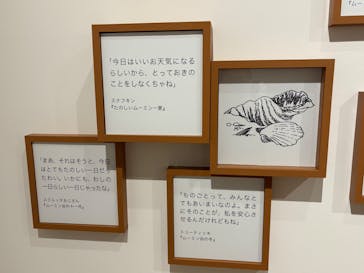 「今日はいいお天気になる
らしいから、とっておきの
ことをしなくちゃね」
スナフキン
『たのしいムーミン一家』
「まあ、それはそうと、今日
はとてもたのしい一日だっ
たわい。いかにも、わしの
一日らしい一日じゃったな」
『ムーミン谷の十一月』
「ものごとって、みんなと
てもあいまいなのよ。まさ
にそのことが、私を安心さ
せるんだけれどもね」
トゥーティッキ
『ムーミン谷の冬』